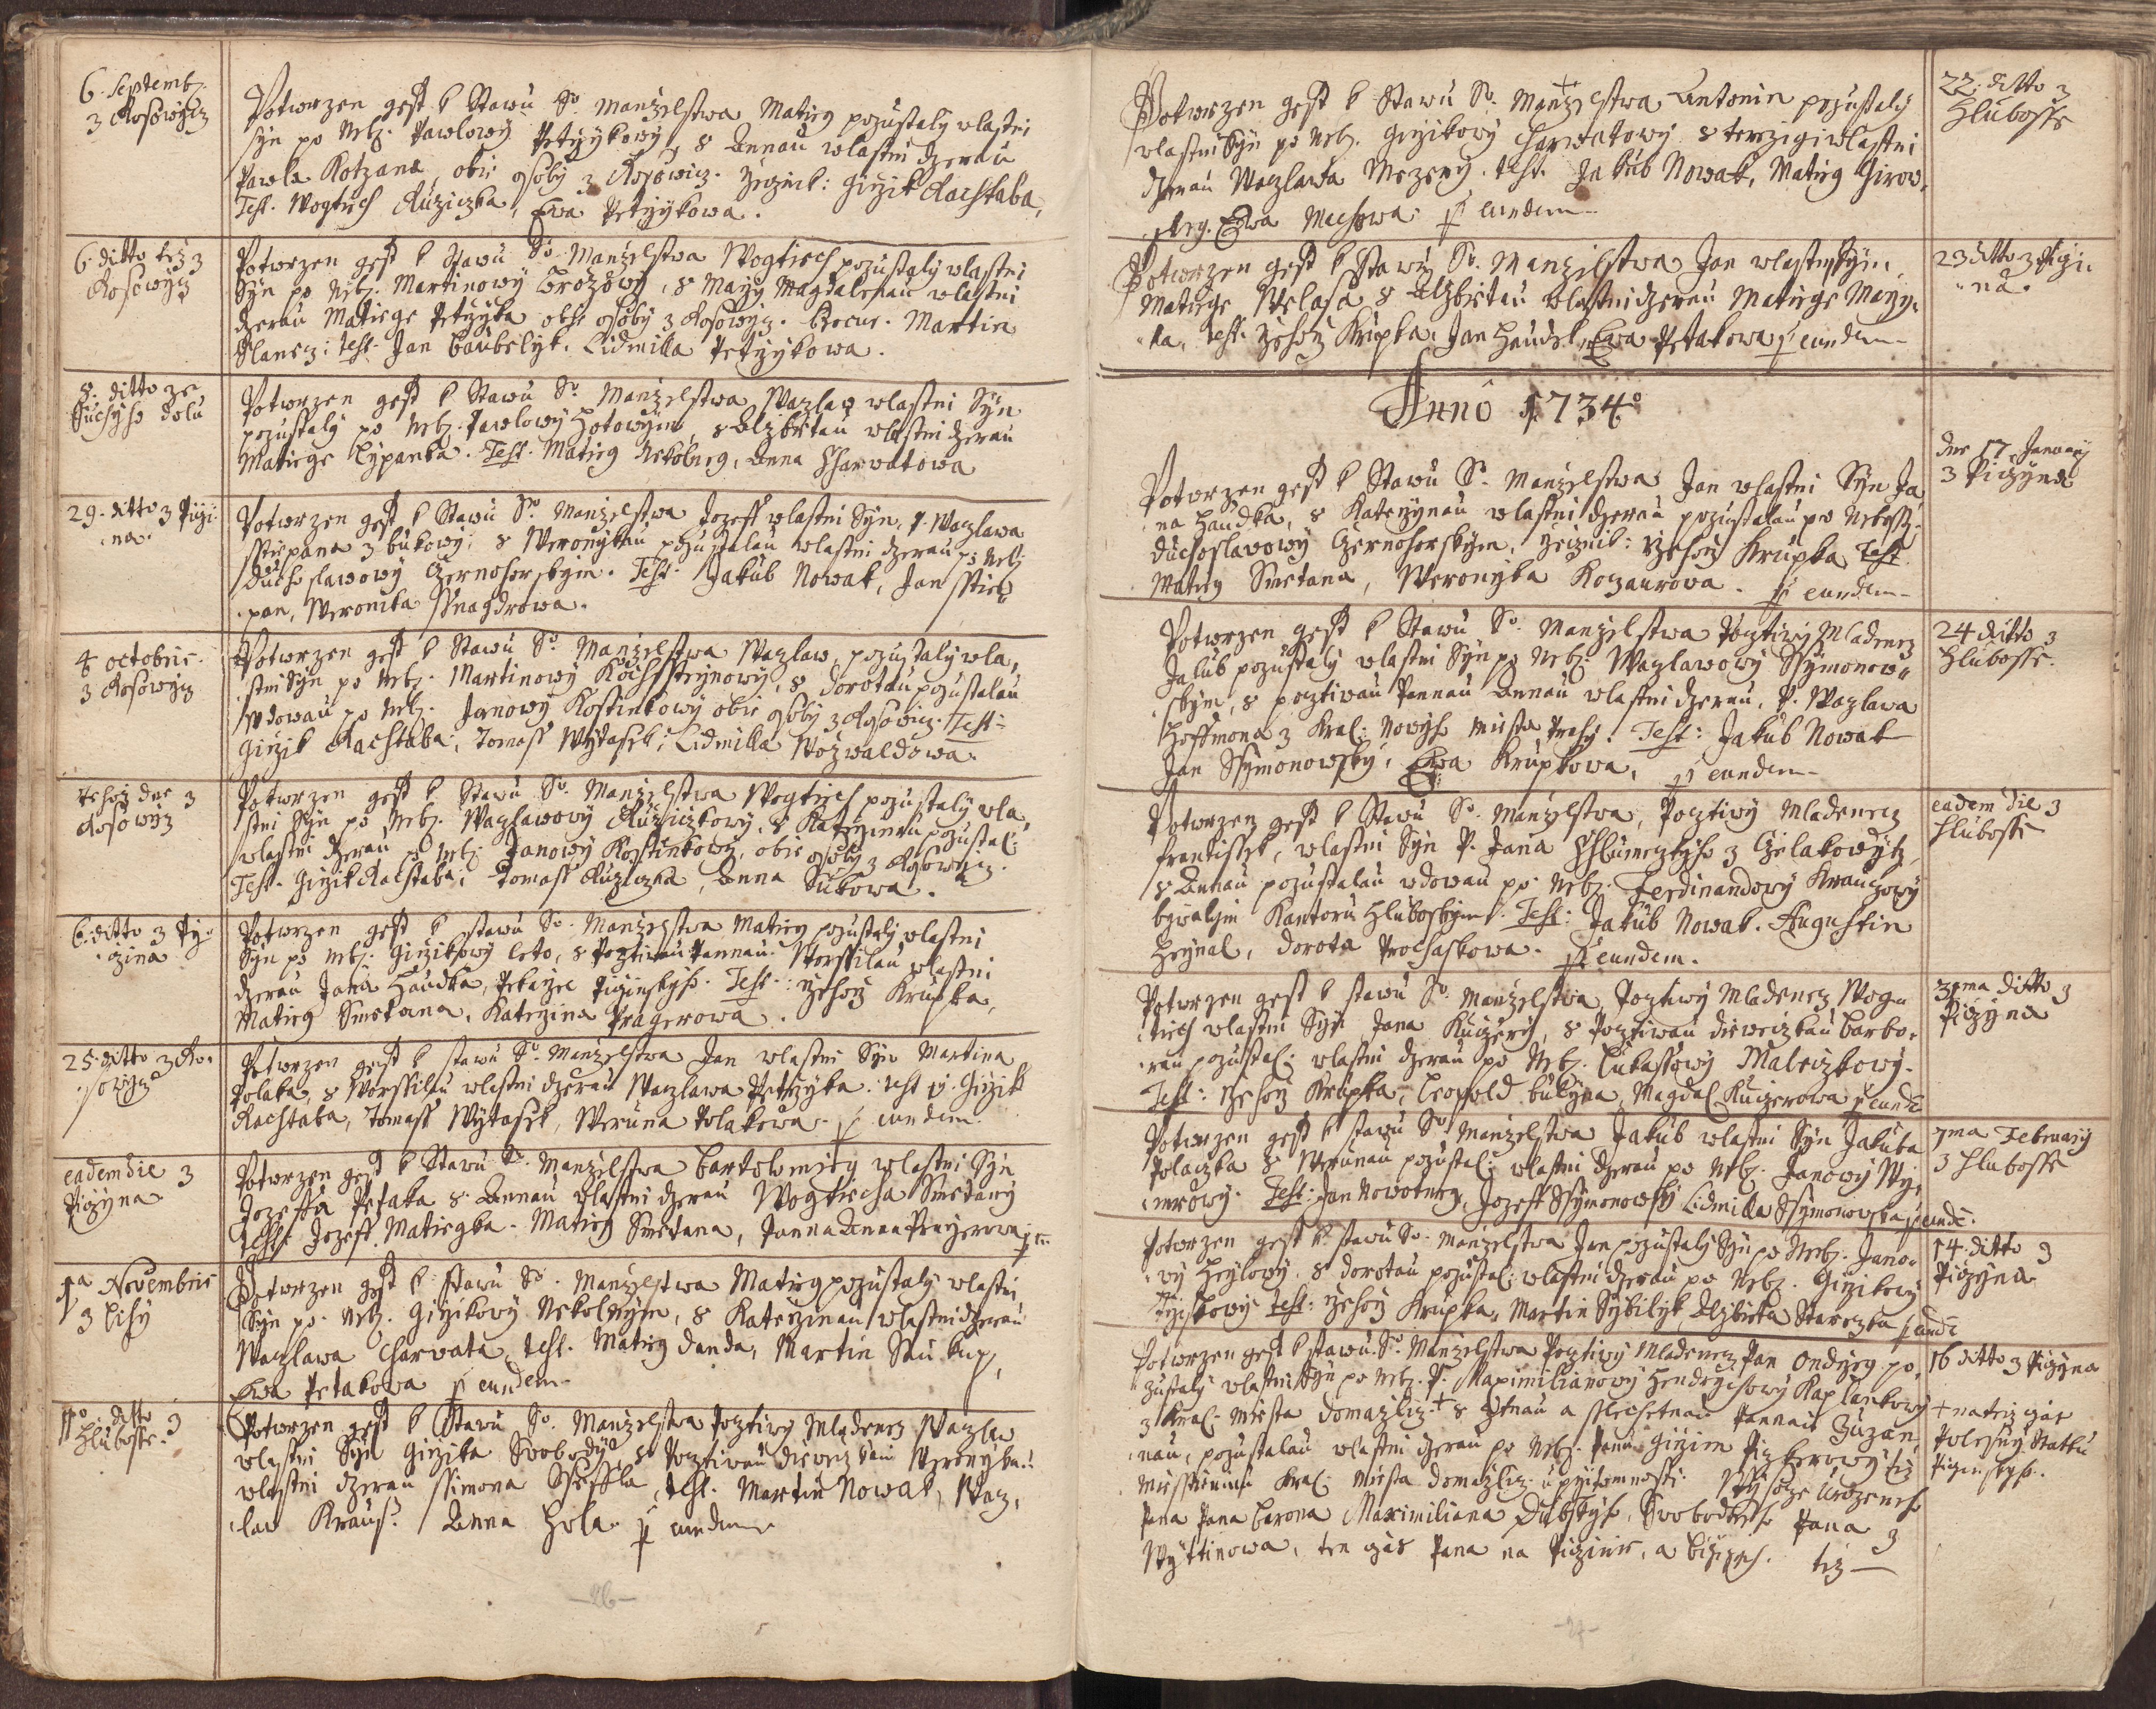 6. Septemb.
z Kosowicz
Potwrzen gest k Stawu Sv. Manzelstwa Matieg pozustaly wlastni
Syn po Neb. Pawlowy Petrzykowy, s Annau wlastni dzerau
Pawla Kotzana, obie osoby z Kosowicz. Girzik Rachtaba,
Test. Wogtiech Ruziczka, Ewa Petrzykowa.
6. ditto tez z
Kosowicz
Potwrzen gest k Stawu Sv. Manzelstwa Wogtiech pozustaly wlastni
Syn po Neb. Martinowy Brozowy, s Magdalenau wlastni
dzerau Matiege Petrzyka obie osoby z Kosowicz. Martin
Slanecz: Test. Jan Lidmilla Petrzykowa.
8. ditto ze
Suchyho dolu
Potwrzen gest k Stawu Sv. Manzelstwa, Wazlaw wlastni Syn
pozustaly po Neb. Pawlowy Hotowym, s Alzbietau wlastni dzerau
Matiege Cypanka. Test. Matieg Nekolneg, Anna Charwatowa
29. ditto z Piczi-
na.
Potwrzen gest k Stawu Sv. Manzelstwa Jozeff wlastni Syn, P. Wazlawa
Sstiepana z bukowy: s Weronykau pozustalau wlastni dzerau po Neb.
Duchoslawowy Czernohorskym. Test. Jakub Nowak, Jan Sstie-
pan, Weronika Ssnagdrowa.
4 octobris.
z Kosowicz
Potwrzen gest k Stawu Sv. Manzelstwa Wazlaw, pozustaly wla-
stni Syn po Neb. Martinowy s Dorotau pozustalau
Wdowau po Neb. Janowy Kostinkowy obie osoby z Kosowicz. Test:
Girzik Rachtaba, Tomass Wytasek, Lidmilla Wozwaldowa.
Tehoz dne z
Kosowicz
Potwrzen gest k Stawu Sv. Manzelstwa Wogtiech pozustaly wla-
stni Syn po Neb. Wazlawowy Ruziczkowy, s Katerzinau pozustal:
wlastni dzerau po Neb. Janowy Kostinkowy, obie osoby z Kosowicz.
Test. Girzik Rachtaba, Tomass Ruziczka, Anna Sukowa.
6. ditto z Pi-
czina
Potwrzen gest k stawu Sv. Manzelstwa Matieg pozustaly wlastni
Syn po Neb. Girzikowy leto, s Poztiwau Pannau. Worssilau wlastni
dzerau Jana Haudka, Pekarze Piczinskyho. Test.: Rzehorz Krupka,
Matieg Smetana, Katerzina Pragerowa.
25. ditto z Ko-
sowicz
Potwrzen gest k stawu Sv. Manzelstwa Jan wlastni Syn Martina
Polaka, s Worssilau wlastni dzerau Wazlawa Petrzyka. Test. Girzik
Rachtaba, Tomass Wytasek, Weruna Polakowa. p eundem.
eadem die z
Piczyna
Potwrzen gest k Stawu Sv. Manzelstwa Bartolomieg wlastni Syn
Jozeffa Petaka s Annau wlastni dzerau Wogtiecha Smetany
Test. Jozeff Matiegka. Matieg Smetana, Panna Anna Pragerowa
1a Novembris
z Lisy
Potwrzen gest k stawu Sv. Manzelstwa Matieg pozustaly wlastni
Syn po Neb. Girzikowy Nekolnym, s Katerzinau wlastni dzerau
Wazlawa Charwata, Test. Matieg danda, Martin Saukup,
Ewa Petakowa p eundem
11o ditto z
Hlubosse.
Potwrzen gest k Stawu Sv. Manzelstwa Poztiwy Mladenecz Wazlaw
wlastni Syn Girzika Swobody, s Poztiwau diewczkau Weronyka:
wlastni dzerau Ssimona Test. Martin Nowak, Waz-
law Kraus. Anna Hola. p eundem
-26-
Potwrzen gest k Stawu Sv. Manzelstwa Antonin pozustaly
wlastni Syn po Neb. Girzikowy Charwatowy s Terezigi wlastni
dzerau Wazlawa Mezery. Test. Jakub Nowak, Matieg Girow-
Ewa Machowa. p eundem
22. ditto z
Hlubosse
Potwrzen gest k Stawu Sv. Manzelstwa Jan wlastni Syn
Matiege Welasa s Alzbietau wlastni dzerau Matiege
ka, Test. Rzehorz Krupka. Jan Haudek, Ewa Petakowa p eundem
23 ditto z Piczi-
na.
Anno 1734o
Potwrzen gest k Stawu Sv. Manzelstwa Jan wlastni Syn Ja-
na Haudka, s Katerzynau wlastni dzerau pozustalau po Neboss.
Duchoslawowy Czernohorskym. Rzehorz Krupka Test.
Matieg Smetana, Weronyka Kozaurowa. p eundem
dne 17 January
z Piczyna
Potwrzen gest k Stawu Sv. Manzelstwa Poztiwy Mladenecz
Jakub pozustaly wlastni Syn po Neb. Wazlawowy Ssymonow-
skym, s poztiwau Pannau Annau wlastni dzerau, P. Wazlawa
Hoffmona z Kral: Nowyho Miesta Prahy. Test: Jakub Nowak
Jan Ssymonowsky, Ewa Krupkowa, p eundem
24 ditto z
Hlubosse.
Potwrzen gest k Stawu Sv. Manzelstwa, Poztiwy Mladenecz
Frantissek, wlastni Syn P. Jana Chlumczkyho z Czelakowytz,
s Annau pozustalau wdowau po Neb. Ferdinandowy Krauzowy
bywalym Kantoru Hluboskym. Test: Jakub Nowak. Augustin
Heynal, Dorota Prochaskowa. p eundem.
eadem die z
Hlubosse
Potwrzen gest k stawu Sv. Manzelstwa, Poztiwy Mladenecz Wog-
tiech wlastni Syn Jana Kuczery, s Poztiwau diweczkau Barbo-
rau pozustal: wlastni dzerau po Neb. Lukassowy Maleczkowy.
Test: Rzehorz Krupka, Leopold Bukyna, Magdal. Kuczerowa p eunde
31ma ditto z
Piczyna
Potwrzen gest k stawu Sv. Manzelstwa Jakub wlastni Syn Jakuba
Polaczka s Werunau pozustal: wlastni dzerau po Neb. Janowy
Test: Jan Nowotney, Jozeff Ssymonowsky Lidmilla Ssymonowska p eunde.
7ma February
z Hlubosse
Potwrzen gest k stawu Sv. Manzelstwa Jan pozustaly Syn po Neb. Jano-
wy Heylowy s Dorotau pozustal: wlastni dzerau po Neb. Girzikowy
Test: Rzehorz Krupka, Martin Alzbieta Starczka p eunde
14. ditto z
Piczyna
Potwrzen gest k stawu Sv. Manzelstwa Poztiwy Mladenecz Pan Ondrzeg po-
zustaly wlastni Syn po Neb. P. Maximilianowy Hendrychowy Kaplankowy
z Kral. Miesta Domazlicz + s Cztnau a Sslechetnau Pannau Zuzan-
nau, pozustalau wlastni dzerau po Neb. Panu Girzim tiz
Miesstieninu Kral. Miesta Domazlicz. u przitomnosti Wysocze Urozeneho
Pana Pana Barona Maximiliana Dubskyho, Swobodneho Pana z
Wyttinowa, ten czas Pana na Piczinie, a tiz
16 ditto z Piczyna
+ na ten czas
Polesny Statku
Piczinskyho.